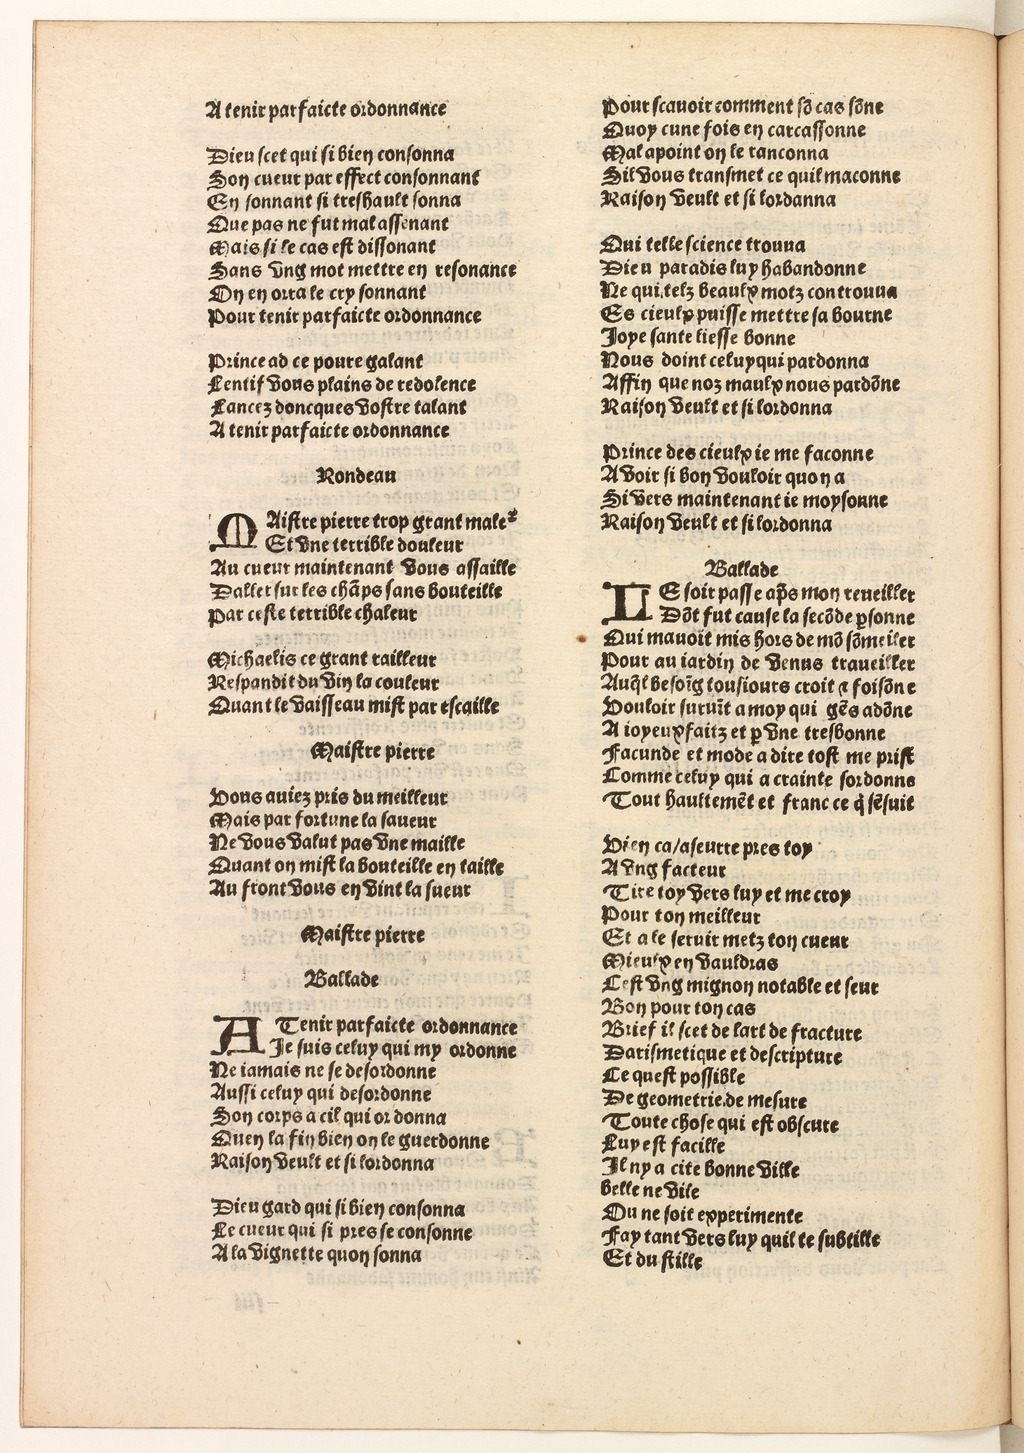 A tenir parfaicte ordonnance
Dieu scet qui si bien consonna
Son cueur par effect consonnant
En sonnant si treshault sonna
Que pas ne fut mal assenant
Mais si le cas est dissonant
Sans vng mot mettre en resonance
On en orra le cry sonnant
Pour tenir parfaicte ordonnance
Prince ad ce poure galant
Lentif vous plains de redolence
Lancez doncques vostre talant
A tenir parfaicte ordonnance
Rondeau
MAistre pierre trop grant male
Et vne terrible douleur
Au cueur maintenant vous assaille
Daller sur les chãps sans bouteille
Par ceste terrible chaleur
Michaelis ce grant railleur
Respandit du vin la couleur
Quant le vaisseau mist par escaille
Maistre pierre
Vous auiez pris du meilleur
Mais par fortune la saueur
Ne vous valut pas vne maille
Quant on mist la bouteille en taille
Au front vous en vint la sueur
Maistre pierre
Ballade
A Tenir parfaicte ordonnance
Je suis celuy qui my ordonne
Ne iamais ne se desordonne
Aussi celuy qui desordonne
Son corps a cil qui ordonna
Quen la fin bien on le guerdonne
Raison veult et si lordonna
Dieu gard qui si bien consonna
Le cueur qui si pres se consonne
A la vignette quon sonna
Pour scauoir comment sõ cas sõne
Quoy cune fois en carcassonne
Mal apoint on le ranconna
Sil vous transmet ce quil maconne
Raison veult et si lordanna
Qui telle science trouua
Dieu paradis luy habandonne
Ne qui telz beaulx motz controuua
Es cieulx puisse mettre sa bourne
Joye sante liesse bonne
Nous doint celuy qui pardonna
Affin que noz maulx nous pardõne
Raison veult et si lordonna
Prince des cieulx ie me faconne
Avoir si bon vouloir quon a
Si vers maintenant ie moysonne
Raison veult et si lordonna
Ballade
LE soir passe aps̃ mon reueiller
Dõt fut cause la secõde ꝑsonne
Qui mauoit mis hors de mõ sõmeiler
Pour au iardin de venus traueiller
Auql̃ besoĩg tousiours croit ⁊ foisõne
Vouloir suruĩt a moy qui gẽs adõne
A ioyeux faitz et ꝑ vne tresbonne
Facunde et mode a dire tost me prist
Comme celuy qui a crainte sordonne
Tout haultemẽt et franc ce q̃ sẽsuit
Vien ca/aseurte pres toy
A vng facteur
Tire toy vers luy et me croy
Pour ton meilleur
Et a le seruir metz ton cueur
Mieulx en vauldras
Cest vng mignon notable et seur
Bon pour ton cas
Brief il scet de lart de fracture
Darismetique et descripture
Ce quest possible
De geometrie.de mesure
Toute chose qui est obscure
Luy est facille
Il ny a cite bonne ville
belle ne vile
Ou ne soit experimente
Fay tant vers luy quil te subtille
Et du stille